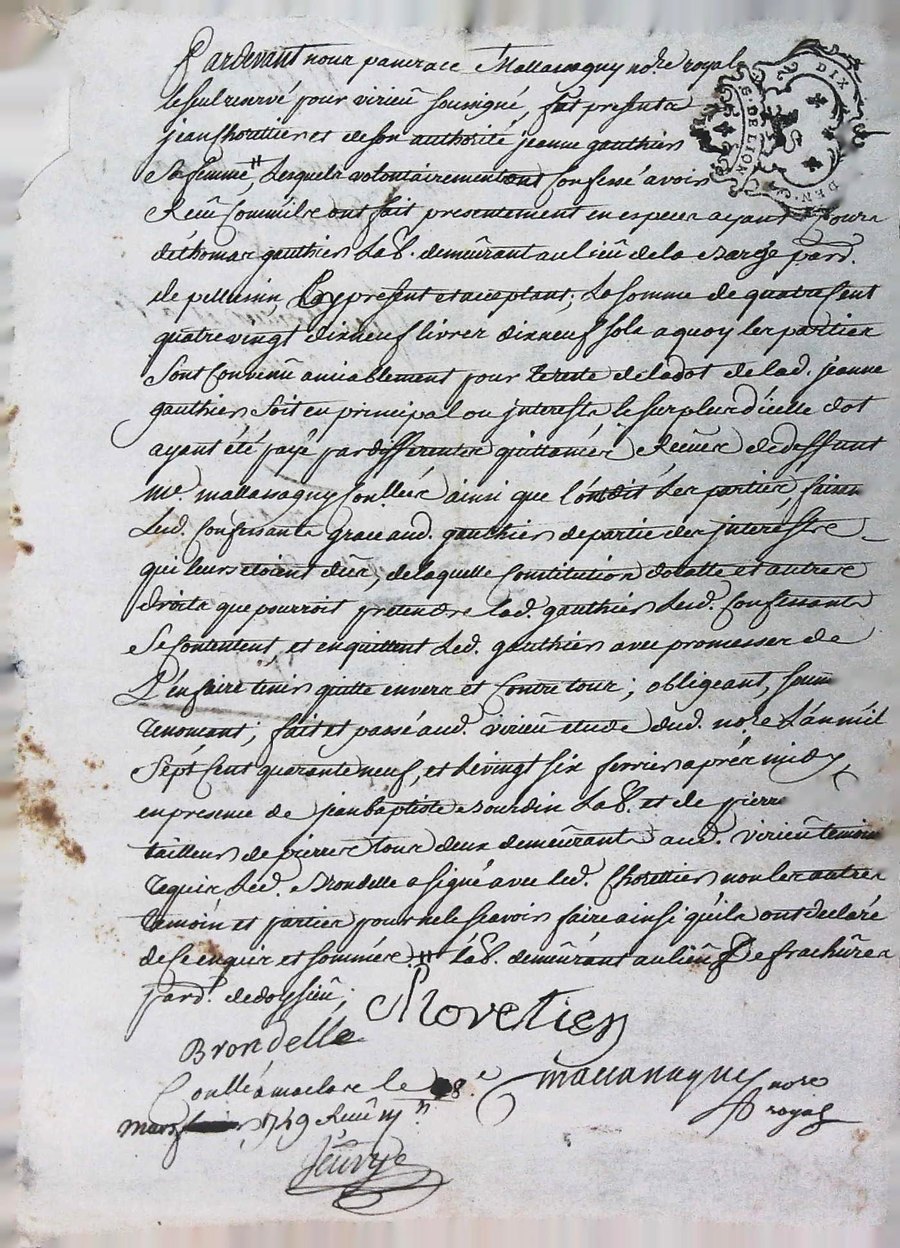 Pardevant nous pancrace Mallassagny no.re royal
le seul reservé pour virieu soussigné, fut présents
jean Chorettier et de son authorité jeanne gauthier
Sa femme, # lesquels volontairement ont Confessé avoir
Receu Comm'ils ont fait presentement en especes ayant Cours
de thomas gauthier Lab.r demeurant au lieu de la par.d
de pellussin Icy présent et acceptant; La somme de quatre Cent
quatre vingt dixneuf livres dixneuf sols a quoy les parties
Sont Convenu amiablement pour le reste de la dot de lad. jeanne
gauthier Soit en principal ou jnterests, le surplus d'icelle dot
ayant été payé par differentes quittances Receues de deffunt
me mallassagny ainsi que l'ont dit Les parties, faisan
Led. Confessants grace aud. gauthier de partie des jnterests
qui leurs etoient dües, de laquelle Constitution dotalle et autres
droits que pourroit prétendre lad. gauthier Led. Confessants
Se Contentent, et en quittent Led. gauthier avec promesses de
L'en faire tenir quitte envers et Contre tous; obligeant, soum
renonçant; fait et passé aud. virieu etude dud. no.re L'an mil
Sept Cent quarante neuf, et le vingt six fevrier après midy
en presence de jean baptiste Lab.r et de pierre
tailleur de pierres tous deux demeurants aud. virieu temoins
requis Led. Brondelle a signé avec led. Chorettier non les autres
temoin et parties pour ne le Sçavoir faire ainsi qu'ils ont declaré
de Ce enquis et sommés # Lab.r demeurant au lieu De frachures
par.d de doyssieu;
Brondelle
Con.llé a maclas le 8.e
mars 1749 Receu
mallassagny no.re
royal
DIX
S. DE LION
DEN.